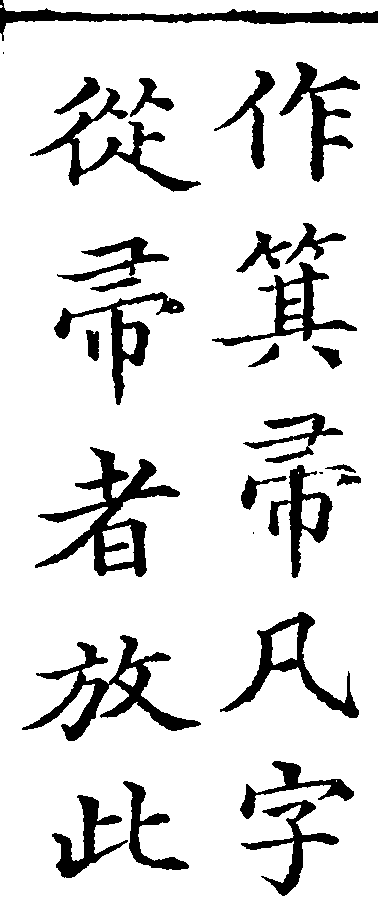 作箕帚凡字
從帚者放此